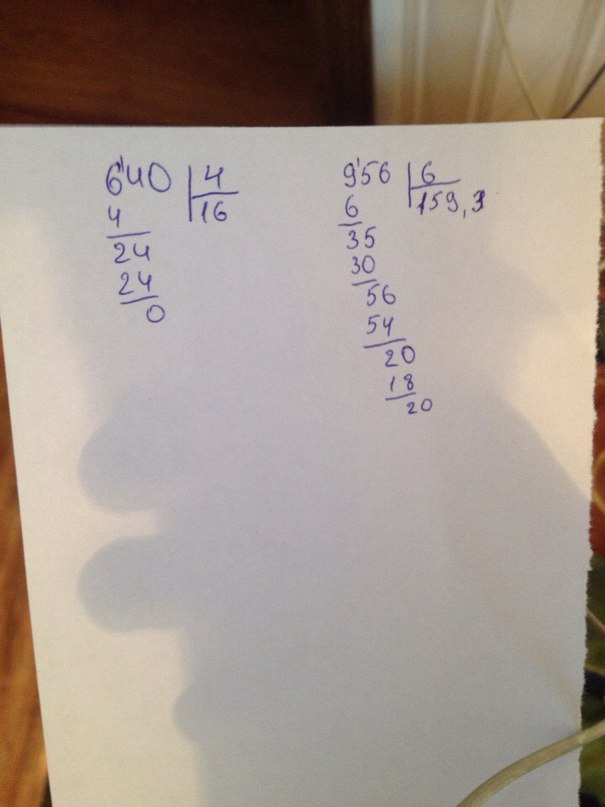 6'40 | 4
4 | 16
24
24
0
9'56 | 6
6 | 159,3
35
30
56
54
20
18
20